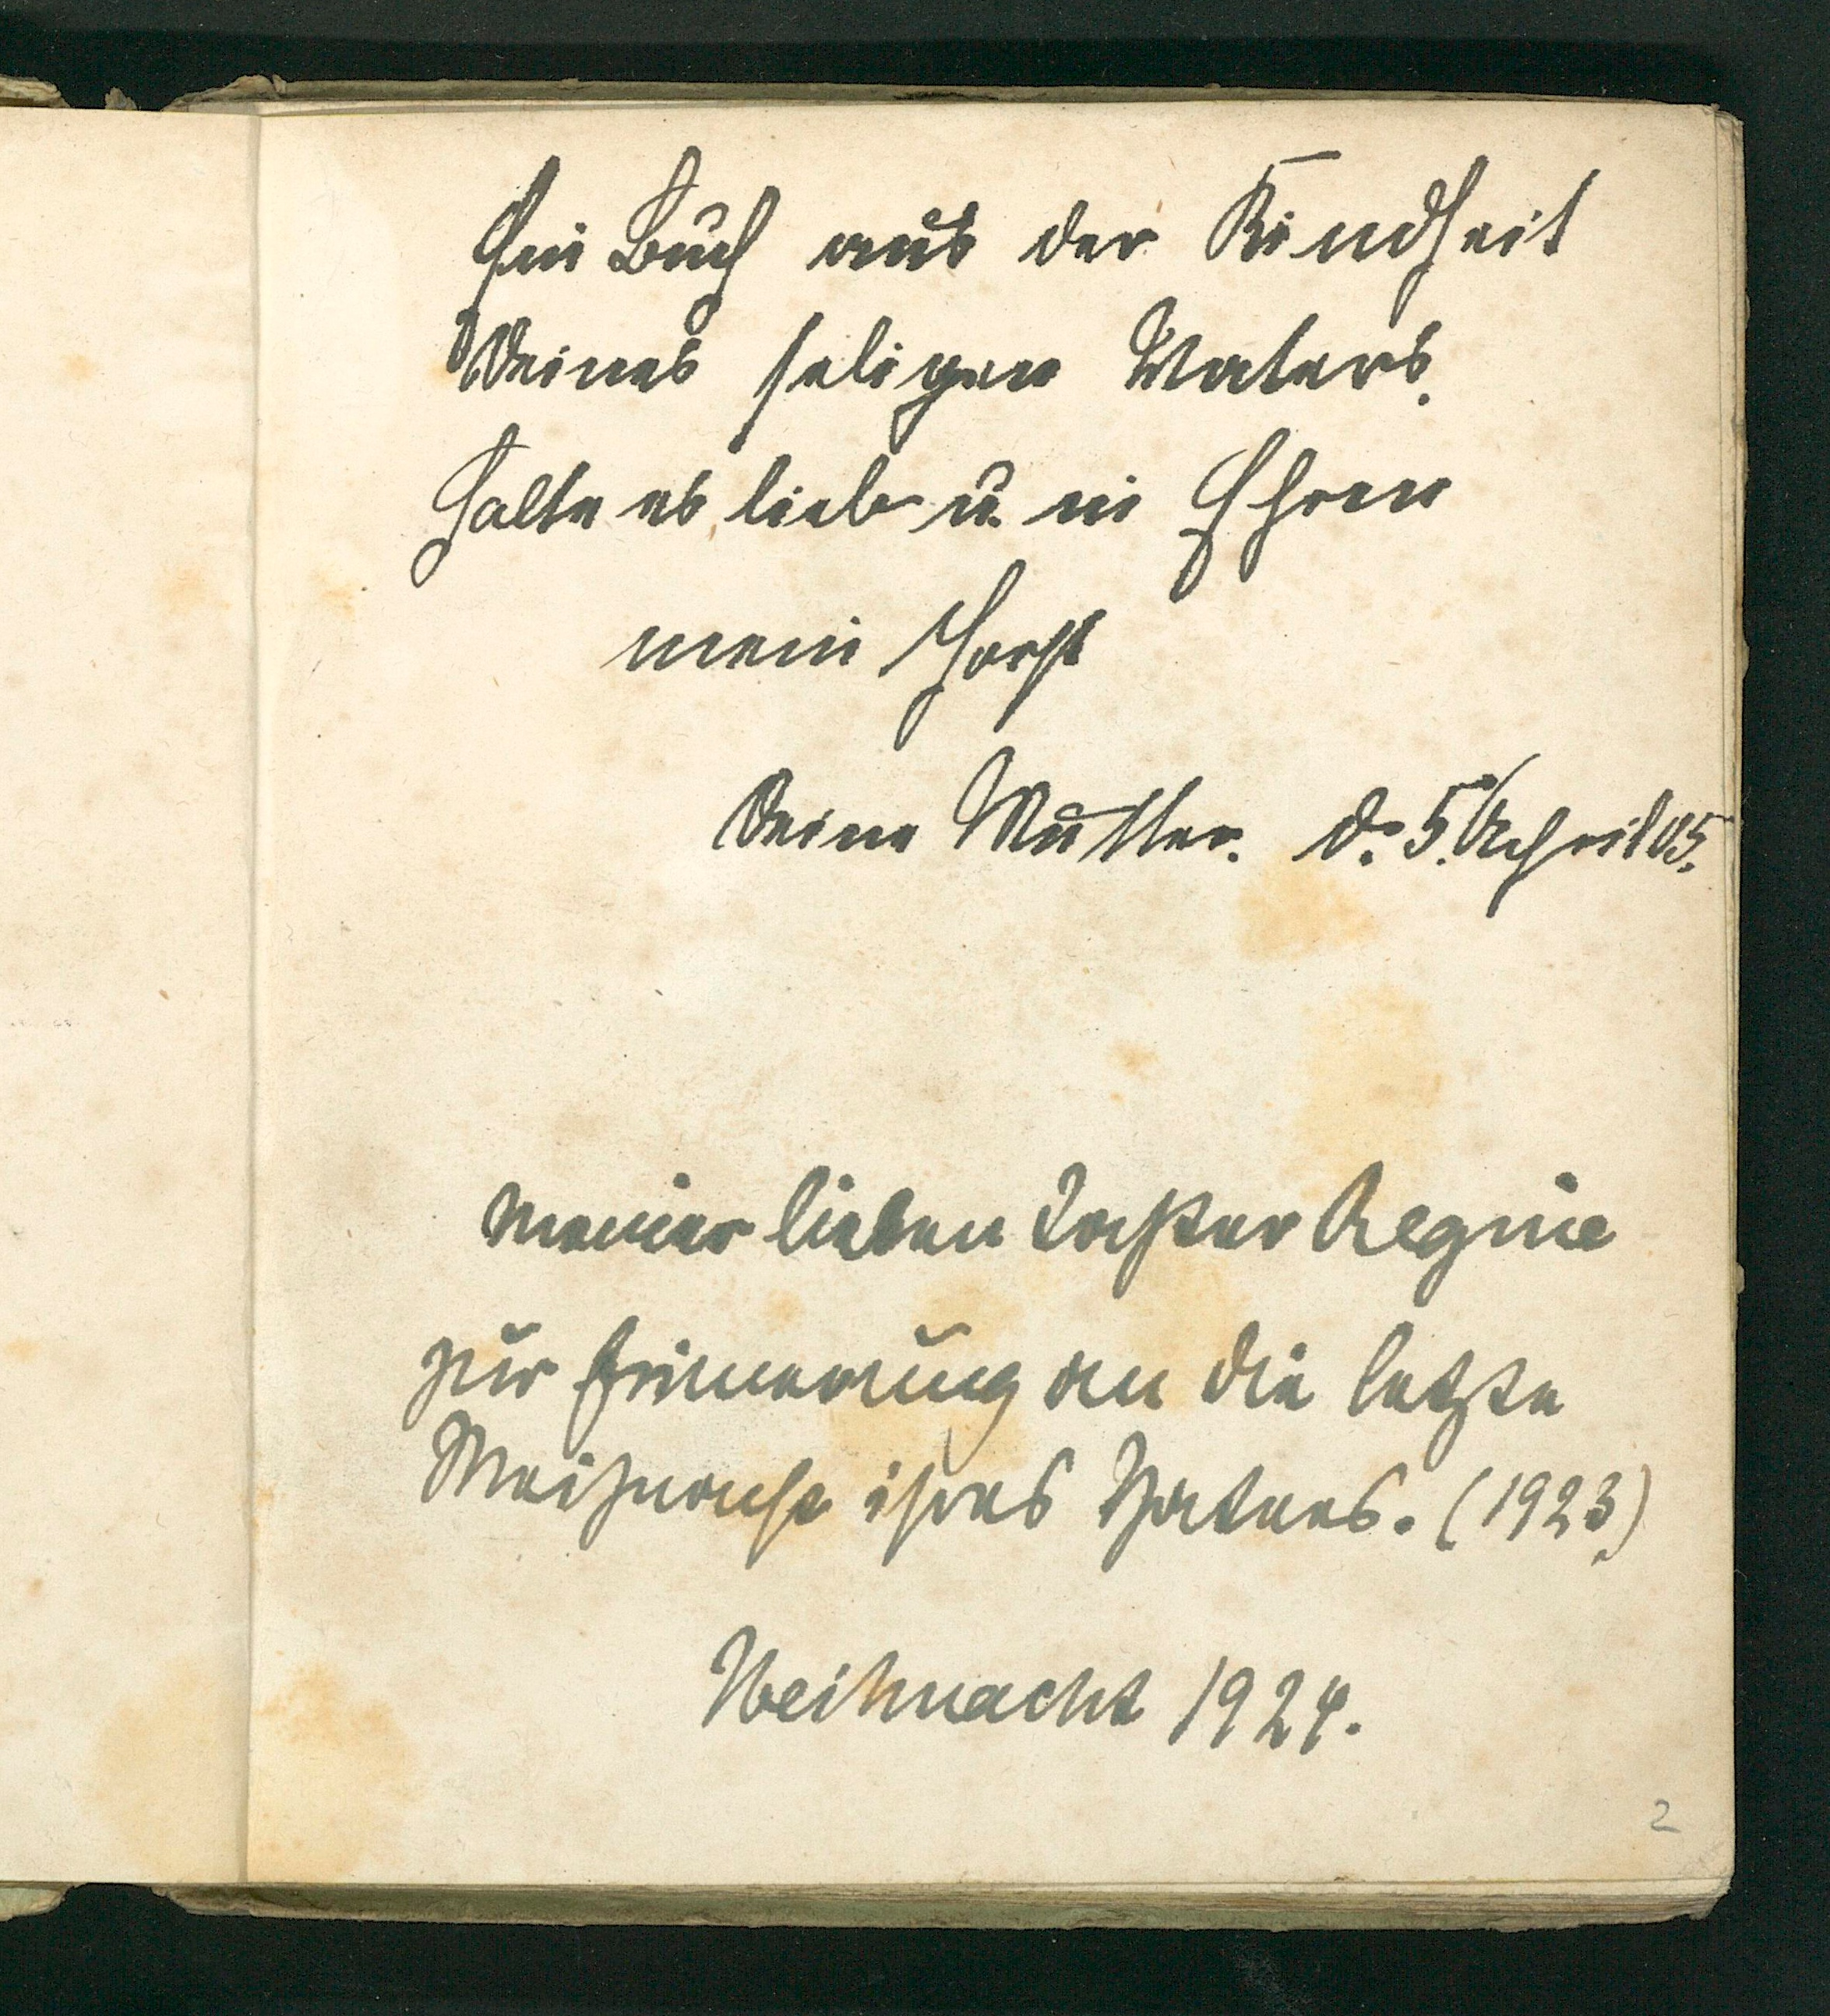 Ein Buch aus der Kindheit
Deines seligen Vaters.
Halte es lieb u. in Ehren
mein Horst
Deine Mutter. d. 5. April 05.
Meiner lieben Tochter Regine
zur Erinnerung an die letzte
Weihnacht ihres Vaters. (1923)
Weihnacht 1924.
2